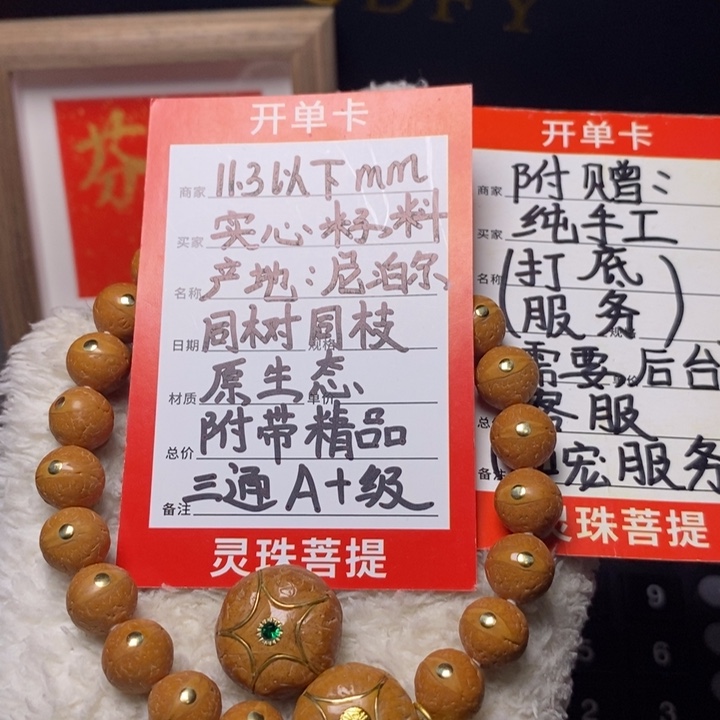 DFY
芬
开单卡
商家 11.3以下mm
买家 实心籽料
名称 产地:尼泊尔
日期 规格 同树同枝
材质 单价 原生态
总价 附带精品
备注 三通A+级
灵珠菩提
开单卡
商家 附赠:
买家 纯手工
名称 (打底
服务)
需要,后台
客服
备注 宏服务
灵珠菩提
9
6